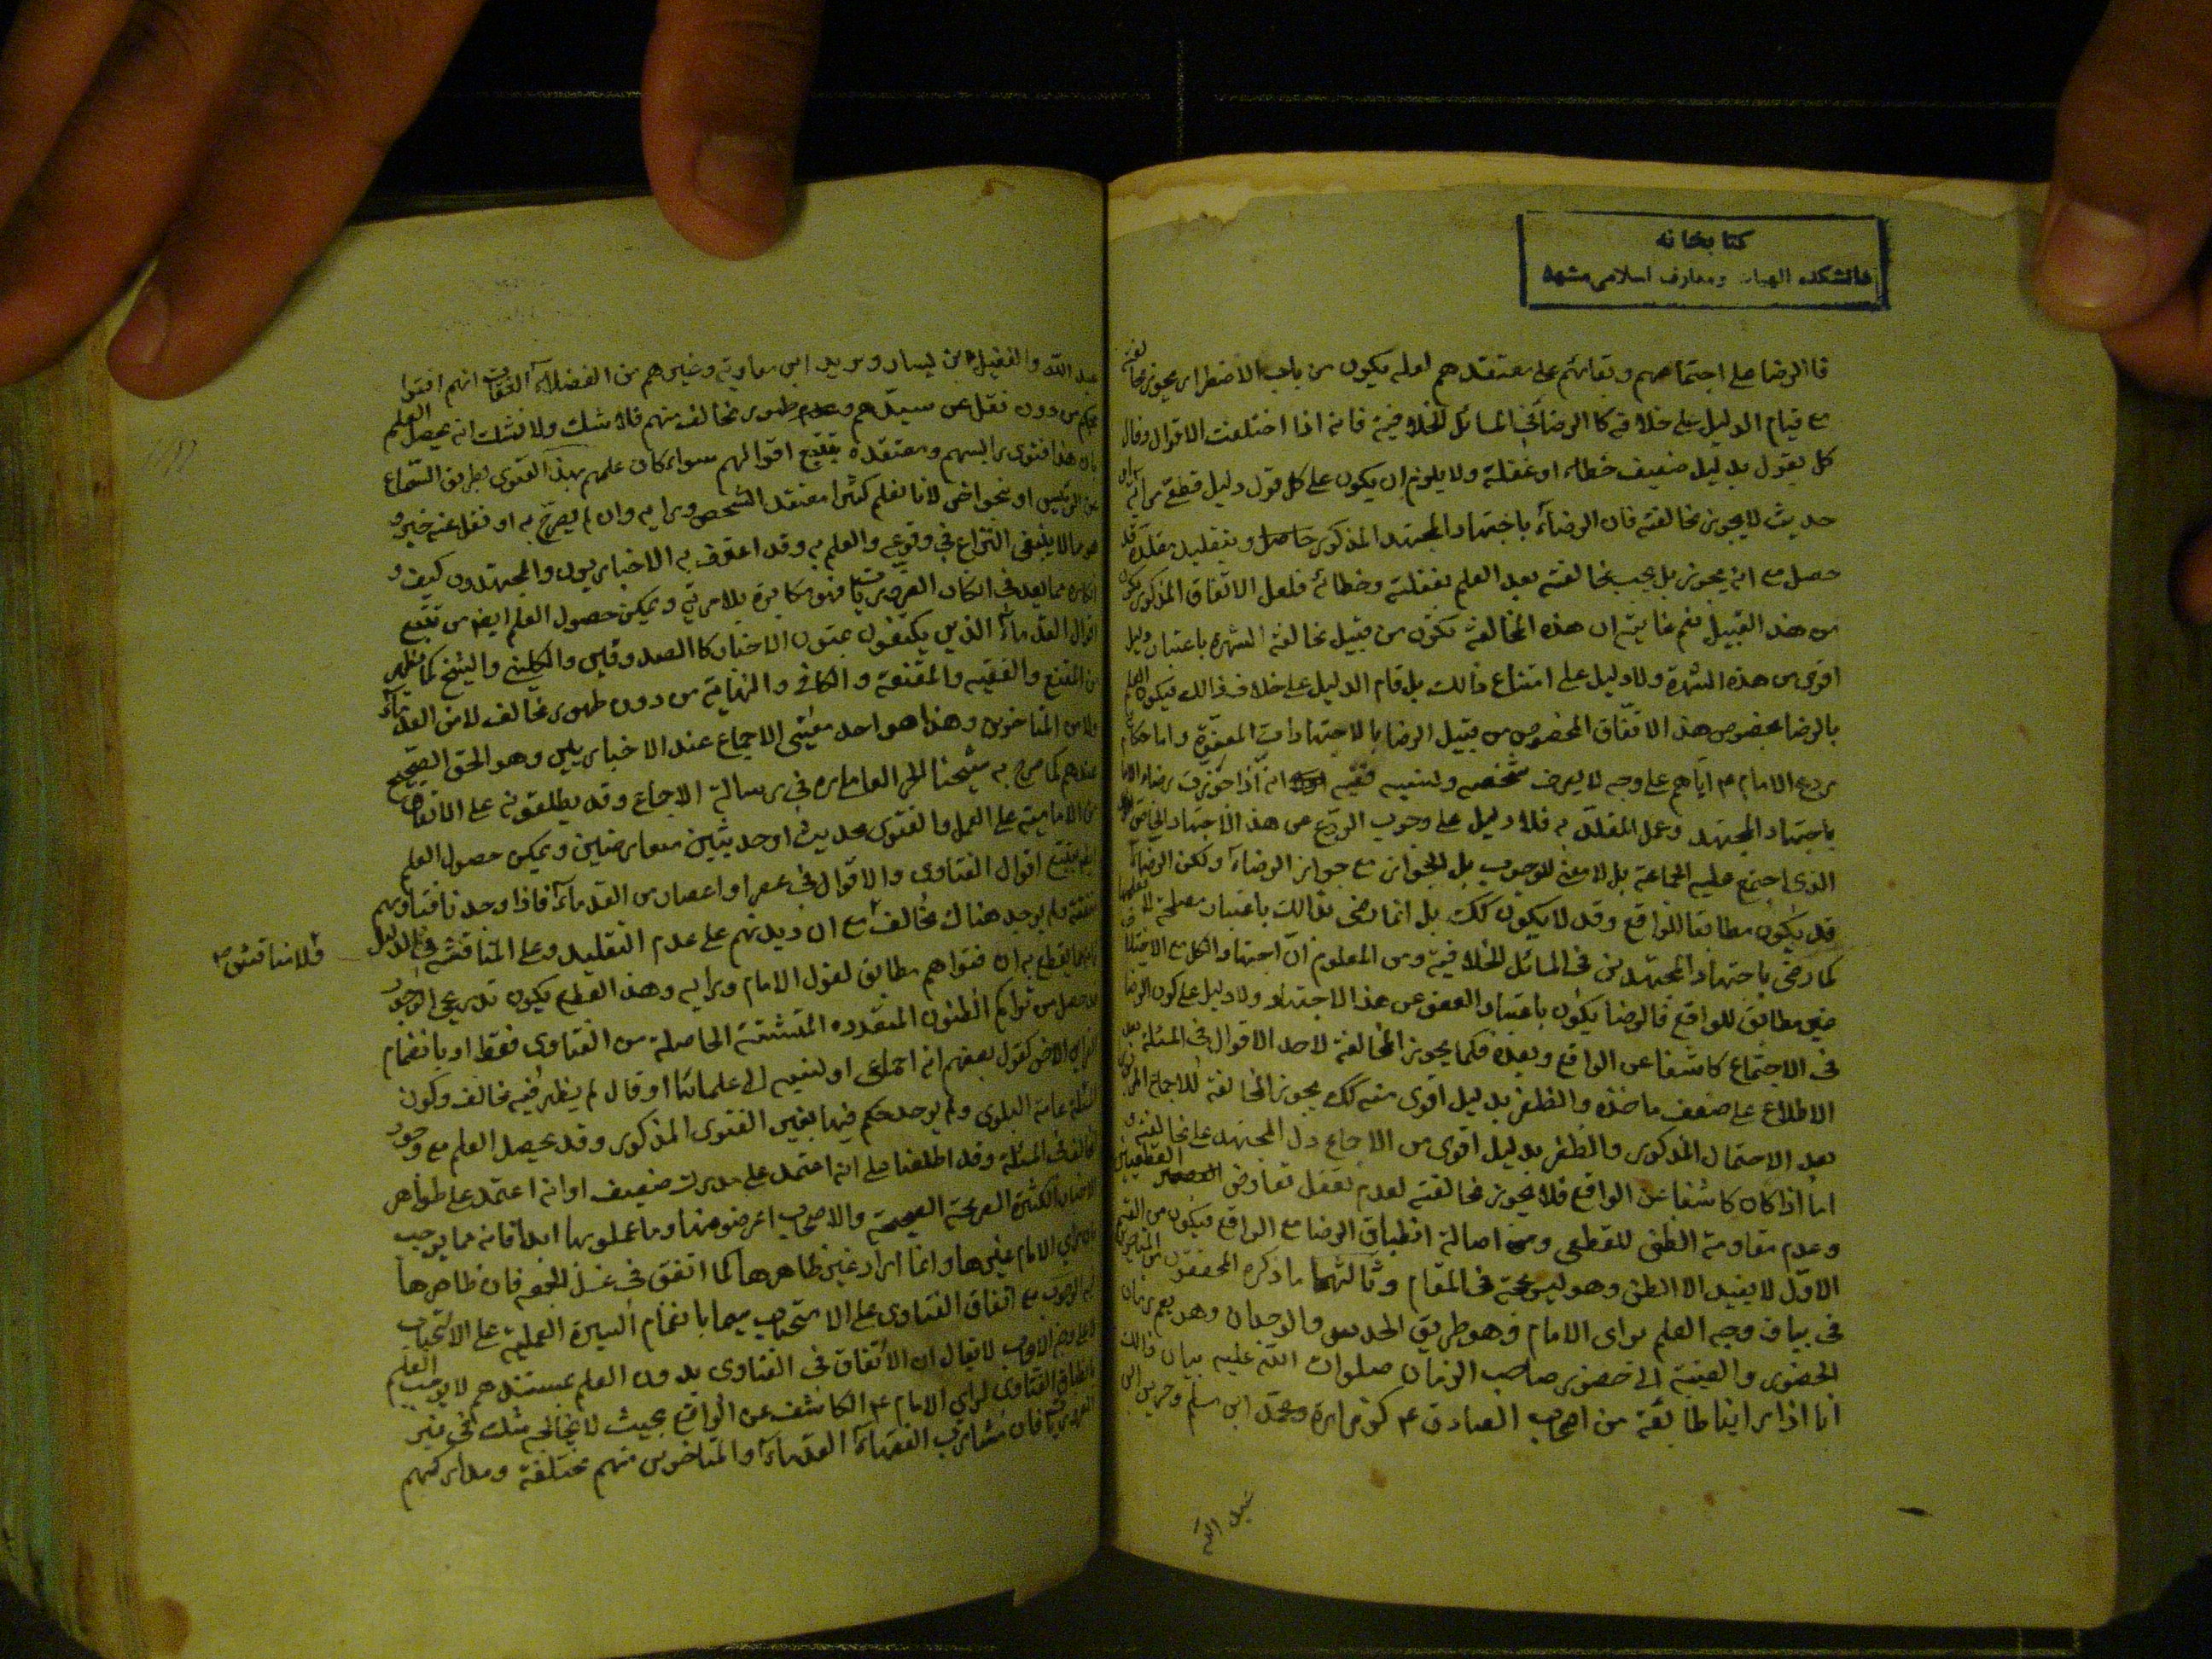 كتابخانه
دانشكده الهيات ومعارف اسلامى مشهد
فالرضا على اجتماعهم وبقائهم على معتقدهم لعله يكون من باب الاضطرار يجوز مخالفته
مع قيام الدليل على خلافه كالرضا فى المسائل الخلافية فانه اذا اختلفت الاقوال وقال
كل بقول بدليل ضعيف خطاء او غفلة ولا يلزم ان يكون على كل قول دليل قطعى من آية او
حديث لا يجوز مخالفته فان الرضاء باجتهاد المجتهد المذكور حاصل وبتقليد مقلده قد
حصل مع انه يجوز بل يجب مخالفته بعد العلم بغفلته وخطائه فلعل الاتفاق المذكور يكون
من هذا القبيل نعم غايته ان هذه المخالفة تكون من قبيل مخالفة الشهرة باعتبار دليل
اقوى من هذه الشهرة ولا دليل على امتناع ذالك بل قام الدليل على خلاف ذالك فيكون العلم
بالرضا بخصوص هذا الاتفاق المخصوص من قبيل الرضا بالاجتهادات المعفوة واما حكاية
ردع الامام ع اياهم على وجه لا يعرف شخصه ونسبه ففيه انه اذا جوزت رضاء الامام
باجتهاد المجتهد وعمل المقلد به فلا دليل على وجوب الردع عن هذا الاجتهاد الخاص
الذى اجتمع عليه الجماعة بل لا معنى للوجوب بل للجواز مع جواز الرضاء ولكن الرضاء
قد يكون مطابقا للواقع وقد لا يكون كك بل انما رضى بذالك باعتبار مصلحة
كما رضى باجتهاد المجتهدين فى المسائل الخلافية ومن المعلوم ان اجتهاد الكل مع الاختلاف
غير مطابق للواقع فالرضا يكون باعتبار العفو عن هذا الاجتهاد ولا دليل على كون الرضا
فى الاجتماع كاشفا عن الواقع وبعده فكما يجوز المخالفة لاحد الاقوال فى المسئلة بعد
الاطلاع على ضعف ماخذه والظفر بدليل اقوى منه كك يجوز المخالفة للاجماع
بعد الاحتمال المذكور والظفر بدليل اقوى من الاجماع دل المجتهد على مخالفته و
اما اذا كان كاشفا عن الواقع فلا يجوز مخالفته لعدم تعقل تعارض القطعيين
وعدم مقاومة الظنى للقطعى ومن اصالة انطباق الرضا مع الواقع فيكون من القسم
الاول لا يفيد الا الظن وهو ليس بحجة فى المقام وثالثها ما ذكره المحققون من المتاخرين
فى بيان وجه العلم براى الامام وهو طريق الحدس والوجدان وهو يعم زمان
الحضور والغيبة الى حضور صاحب الزمان صلوات الله عليه بيان ذالك
انا اذا راينا طائفة من اصحاب الصادق ع كزرارة ومحمد ابن مسلم وحريز ابن
عبد الله والفضيل ابن يسار وبريد ابن معاوية وغيرهم من الفضلاء الثقات انهم افتوا
بحكم من دون نقل عن سيدهم وعدم ظهور مخالف منهم فلا شك ولا نشك انه يحصل العلم
بان هذا فتوى رئيسهم ومعتقده بتتبع اقوالهم سواء كان علمهم بهذا الفتوى بطريق السماع
من الرئيس او نحو اخر لانا نعلم كثيرا معتقد الشخص ورايه وان لم يصرح به او نقل عنه خبر و
هو مما لا ينبغى النزاع فى وقوعه والعلم به وقد اعترف به الاخباريون والمجتهدون كيف و
انكاره مما يعد فى انكار الضروريات فهو مكابرة بلا مرية ويمكن حصول العلم ايضا من تتبع
اقوال القدماء الذين يكتفون بمتون الاخبار كالصدوقين والكلينى والشيخ كما يظهر
من المقنع والفقيه والمقنعة والكافى والنهاية من دون ظهور مخالف لا من القدماء
ولا من المتاخرين وهذا هو احد معنيى الاجماع عند الاخباريين وهو الحق الصحيح
عندهم كما صرح به شيخنا الحر العاملى ره فى رسالة الاجماع وقد يطلقونه على اتفاق
من الامامية على العمل والفتوى بحديث او حديثين متعارضين ويمكن حصول العلم
ايضا بتتبع اقوال الفتاوى والاقوال فى عصر او اعصار من القدماء فاذا وجدنا فتاويهم
متفقة ولم يوجد هناك مخالف مع ان ديدنهم على عدم التقليد وعلى المناقشة فى الدليل
فلا مناقشة ص
فربما يقطع به ان فتواهم مطابق لقول الامام ورايه وهذا القطع يكون تدريجى الوجود
قد حصل من تراكم الظنون المتعدده المتشتتة الحاصلة من الفتاوى فقط او بانضمام
القراين الاخر كقول بعضهم انه اجماعى او لنسبه الى علمائنا او قال لم يظهر فيه مخالف وكون
المسئلة عامة البلوى ولم يوجد حكم فيها بغير الفتوى المذكور وقد يحصل العلم مع وجود
المخالف فى المسئلة وقد اطلعنا على انه اعتمد على مدرك ضعيف او انه اعتمد على ظواهر
الاخبار الكثيرة الصريحة الصحيحة والاصحاب اعرضوا عنها وما عملوا بها ابدا فانه مما يوجب
بان راى الامام غيرها وانما اراد غير ظاهرها كما اتفق فى غسل الجمعه فان ظاهرها
الوجوب مع اتفاق الفتاوى على الاستحباب سيما بانضمام السيرة العملية على الاستحباب
لا يقال ان الاتفاق فى الفتاوى بدون العلم بمستندهم لا يوجب العلم
بانطباق الفتاوى لراى الامام ع الكاشف عن الواقع بحيث لا يخالجه شك فى غير
الضروريات فان مشارب الفقهاء القدماء والمتاخرين منهم مختلفة ومداركهم